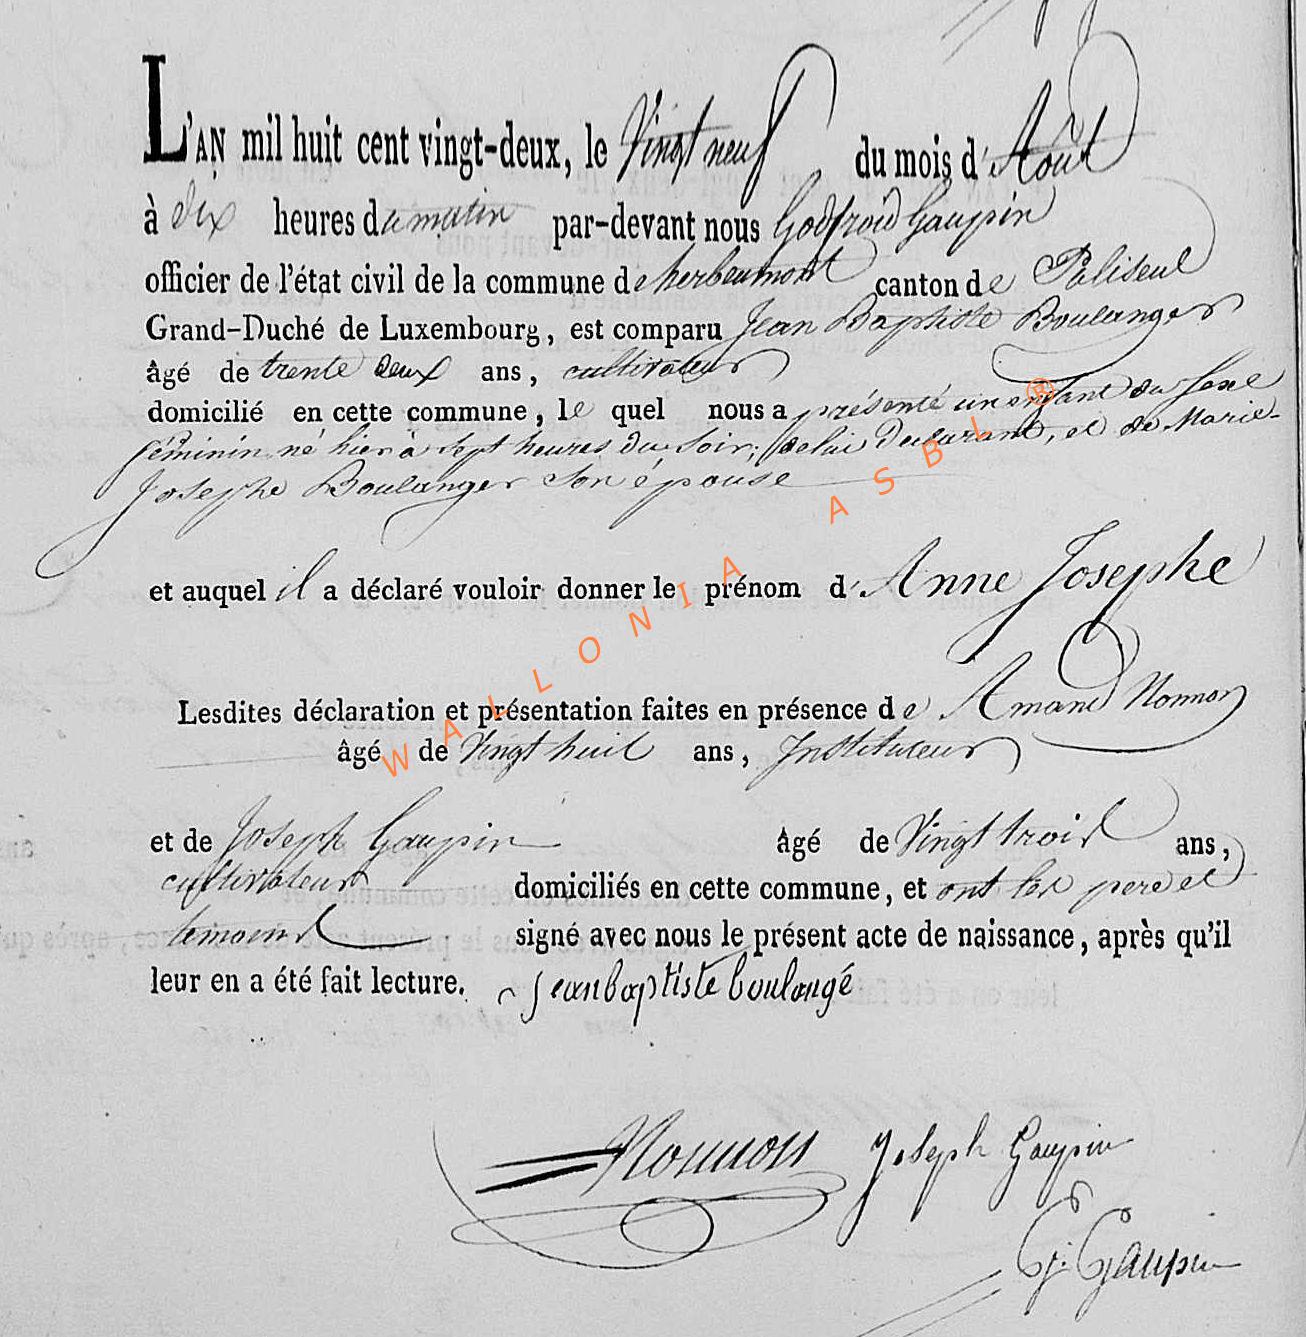 L'AN mil huit cent vingt-deux, le Vingt neuf du mois d'Août
à dix heures du matin par-devant nous Godfroid Gaupin
officier de l'état civil de la commune de herbeumont canton de Paliseul
Grand-Duché de Luxembourg, est comparu Jean Baptiste Boulanger
âgé de trente deux ans, cultivateur
domicilié en cette commune, le quel nous a présenté un enfant du sexe
féminin né hier à sept heures du soir, de lui Declarant, et de Marie-
Josephe Boulanger son épouse
et auquel il a déclaré vouloir donner le prénom d'Anne Josephe
Lesdites déclaration et présentation faites en présence de Amand Nonnon
âgé de Vingt huit ans, Instituteur
et de Joseph Gaupin âgé de Vingt trois ans,
cultivateur domiciliés en cette commune, et ont les pere et
temoins signé avec nous le présent acte de naissance, après qu'il
leur en a été fait lecture. jean baptiste boulangé
Nonnon Joseph Gaupin
G. Gaupin
WALLONIA ASBL ®